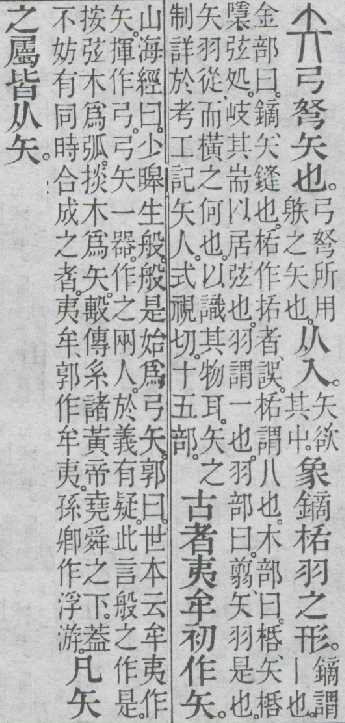 弓弩矢也。弓弩所用躲之矢也。从入。矢欲其中。象鏑栝羽之形。鏑謂丨也。
金部曰。鏑、矢鏠也。栝作拓者、誤。栝謂八也。木部曰。桰、矢桰
檃弦处。岐其耑㠯居弦也。羽謂一也。羽部曰。翦、矢羽是也。
矢羽從而橫之何也。以識其物耳。矢之
制詳於考工記矢人。式視切。十五部。古者夷牟初作矢。
山海經曰。少皞生般。般是始爲弓矢。郭曰。世本云牟夷作
矢。揮作弓。弓矢一器。作之兩人。於義有疑。此言般之作是。
按弦木爲弧。掞木爲矢。毄傳系諸黃帝堯舜之下。葢
不妨有同時合成之者。夷牟、郭作牟夷。孫卿作浮游。凡矢
之屬皆从矢。